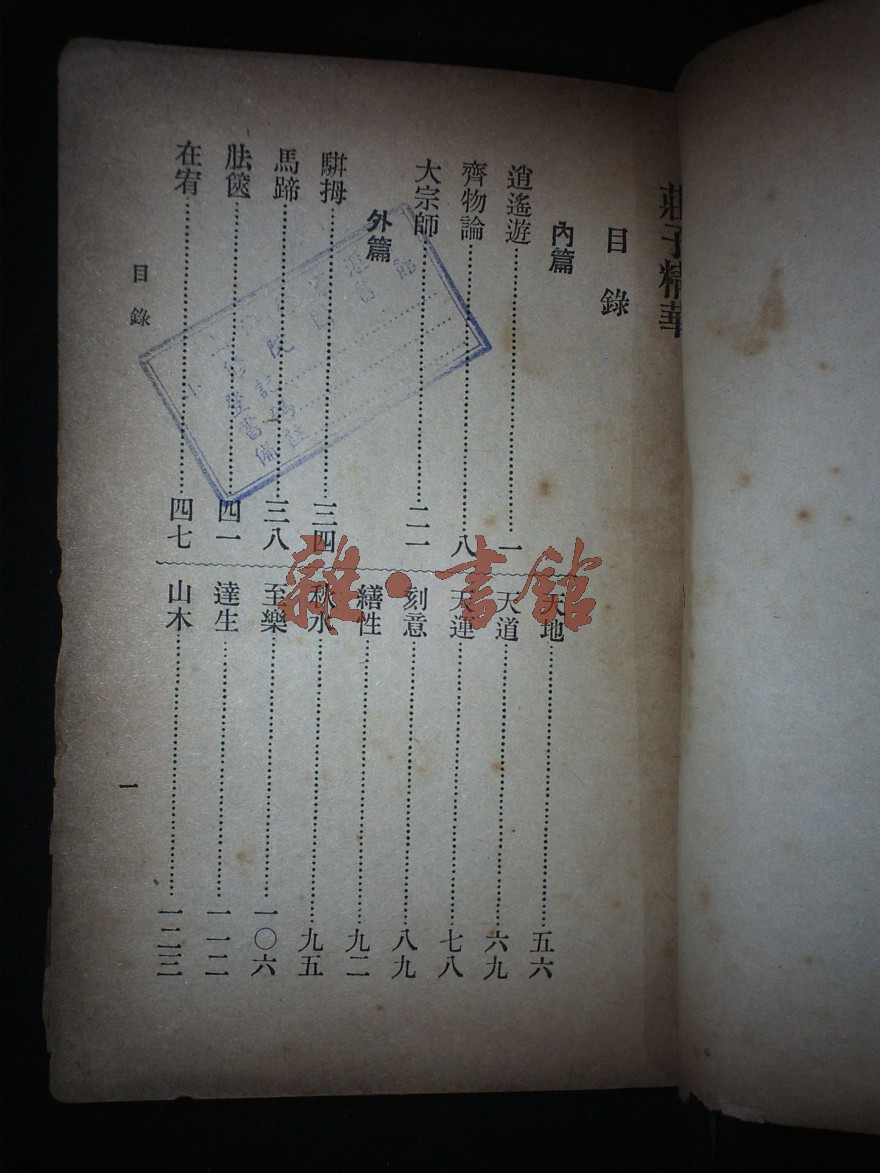 莊子精華
目錄
內篇
逍遙遊 一
齊物論 八
大宗師 二一
外篇
騈拇 三四
馬蹄 三八
胠篋 四一
在宥 四七
天地 五六
天道 六九
天運 七八
刻意 八九
繕性 九二
秋水 九五
至樂 一〇六
達生 一一二
山木 一二三
目錄
一
雜·書館
登記
書碼
備註